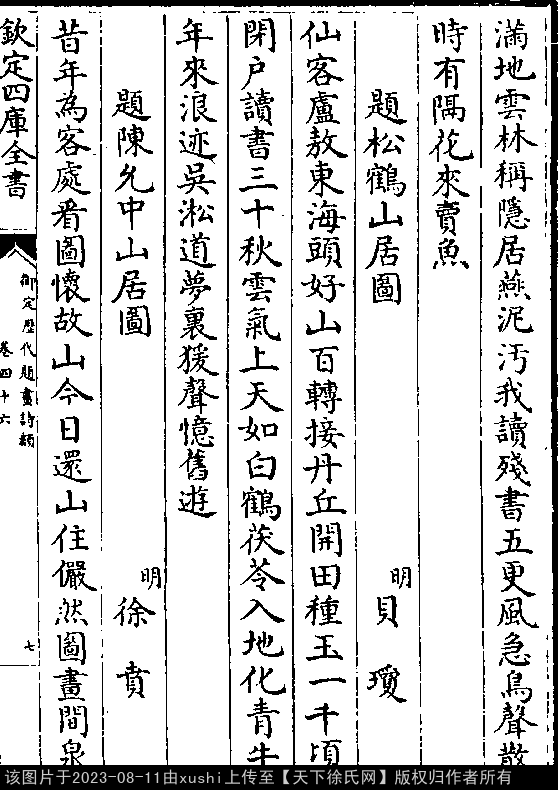 滿地雲林稱隱居燕泥汚我讀殘書五更風急鳥聲散
時有隔花來賣魚
題松鶴山居圖 明貝瓊
仙客盧敖東海頭好山百轉接丹丘開田種玉一千頃
閉户讀書三十秋雲氣上天如白鶴茯苓入地化青牛
年來浪迹吳淞道夢裏猨聲憶舊遊
題陳允中山居圖 明徐賁
昔年為客處看圖懷故山今日還山住儼然圖畫間泉
欽定四庫全書
御定歷代題畫詩類
卷四十六
七
该图片于2023-08-11由xushi上传至【天下徐氏网】版权归作者所有